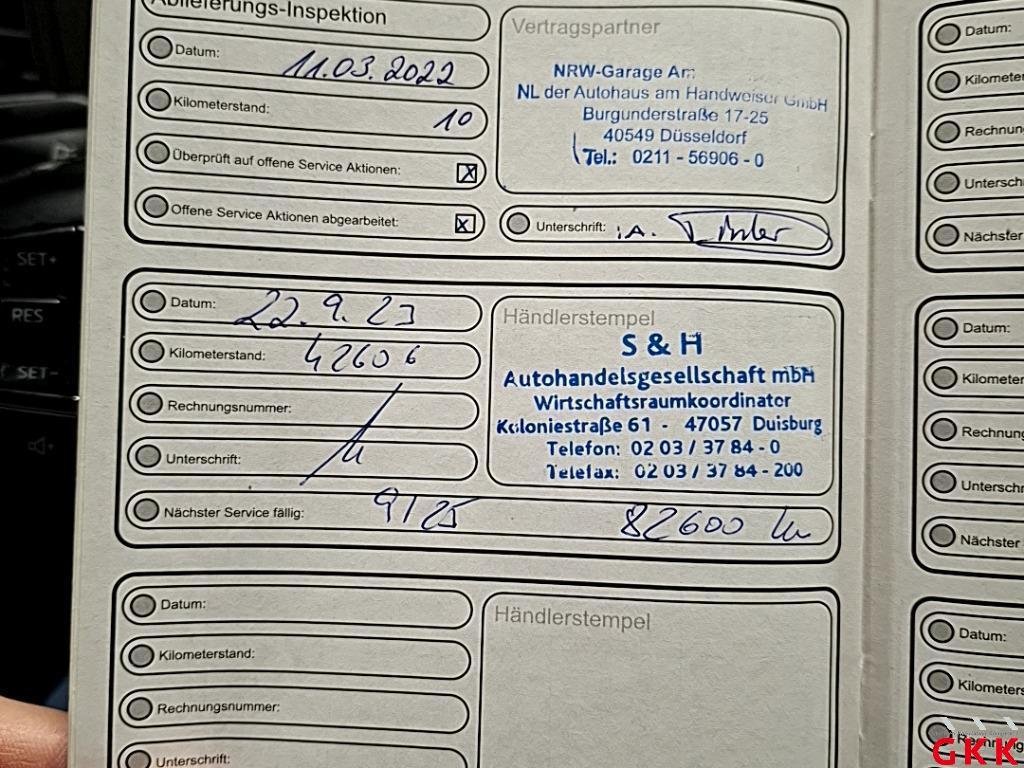 Ablieferungs-Inspektion
Datum: 11.03.2022
Kilometerstand: 10
Überprüft auf offene Service Aktionen: X
Offene Service Aktionen abgearbeitet: X
Vertragspartner
NRW-Garage Am
NL der Autohaus am Handweiser GmbH
Burgunderstraße 17-25
40549 Düsseldorf
Tel.: 0211 - 56906 - 0
Unterschrift: i.A.
Datum: 22.9.23
Kilometerstand: 42606
Rechnungsnummer:
Unterschrift:
Nächster Service fällig: 9/25 82600 km
Händlerstempel
S & H
Autohandelsgesellschaft mbH
Wirtschaftsraumkoordinator
Koloniestraße 61 - 47057 Duisburg
Telefon: 02 03 / 37 84 - 0
Telefax: 02 03 / 37 84 - 200
Datum:
Kilometerstand:
Rechnungsnummer:
Unterschrift:
Händlerstempel
Datum:
Kilometer
Rechnun
Unterschr
Nächster
Datum:
Kilometer
Rechnung
Unterschr
Nächster
Datum:
Kilometers
Rechnung
SET+
RES
SET-
GKK